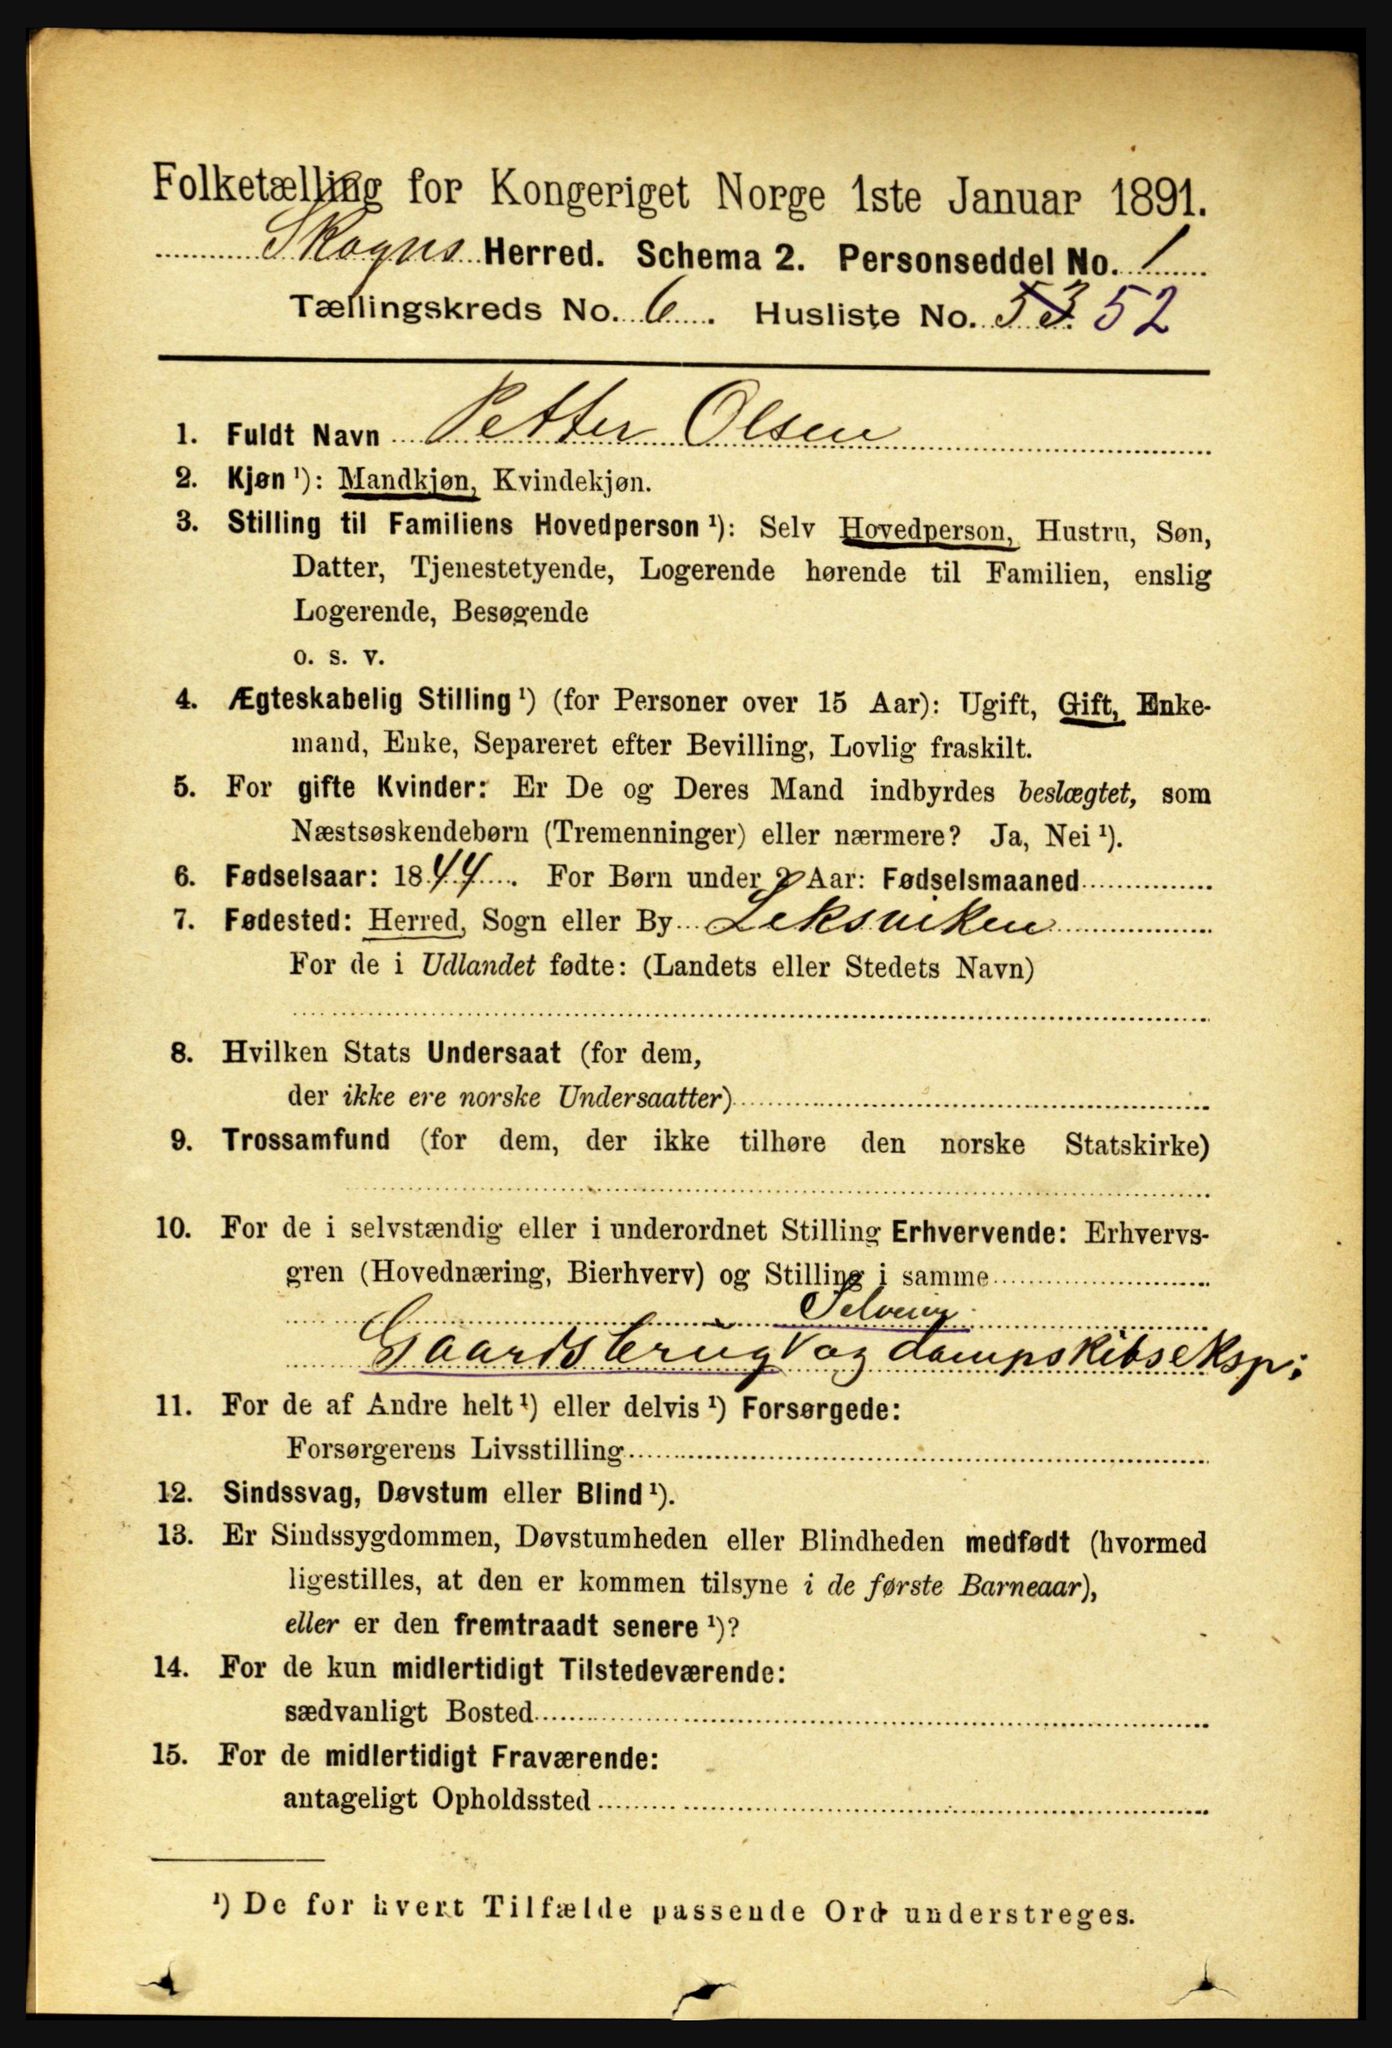 Folketælling for Kongeriget Norge 1ste Januar 1891.
Skogns Herred. Schema 2. Personseddel No. 1
Tællingskreds No. 6. Husliste No. 53 52
1. Fuldt Navn Petter Olsen
2. Kjøn ¹): Mandkjøn, Kvindekjøn.
3. Stilling til Familiens Hovedperson ¹): Selv Hovedperson, Hustru, Søn,
Datter, Tjenestetyende, Logerende hørende til Familien, enslig
Logerende, Besøgende
o. s. v.
4. Ægteskabelig Stilling ¹) (for Personer over 15 Aar): Ugift, Gift, Enke-
mand, Enke, Separeret efter Bevilling, Lovlig fraskilt.
5. For gifte Kvinder: Er De og Deres Mand indbyrdes beslægtet, som
Næstsøskendebørn (Tremenninger) eller nærmere? Ja, Nei ¹).
6. Fødselsaar: 1844. For Børn under 2 Aar: Fødselsmaaned
7. Fødested: Herred, Sogn eller By Leksviken
For de i Udlandet fødte: (Landets eller Stedets Navn)
8. Hvilken Stats Undersaat (for dem,
der ikke ere norske Undersaatter)
9. Trossamfund (for dem, der ikke tilhøre den norske Statskirke)
10. For de i selvstændig eller i underordnet Stilling Erhvervende: Erhvervs-
gren (Hovednæring, Bierhverv) og Stilling i samme
Selveier
Gaardsbrug og dampskibseksp:
11. For de af Andre helt ¹) eller delvis ¹) Forsørgede:
Forsørgerens Livsstilling
12. Sindssvag, Døvstum eller Blind ¹).
13. Er Sindssygdommen, Døvstumheden eller Blindheden medfødt (hvormed
ligestilles, at den er kommen tilsyne i de første Barneaar),
eller er den fremtraadt senere ¹)?
14. For de kun midlertidigt Tilstedeværende:
sædvanligt Bosted
15. For de midlertidigt Fraværende:
antageligt Opholdssted
¹) De for hvert Tilfælde passende Ord understreges.